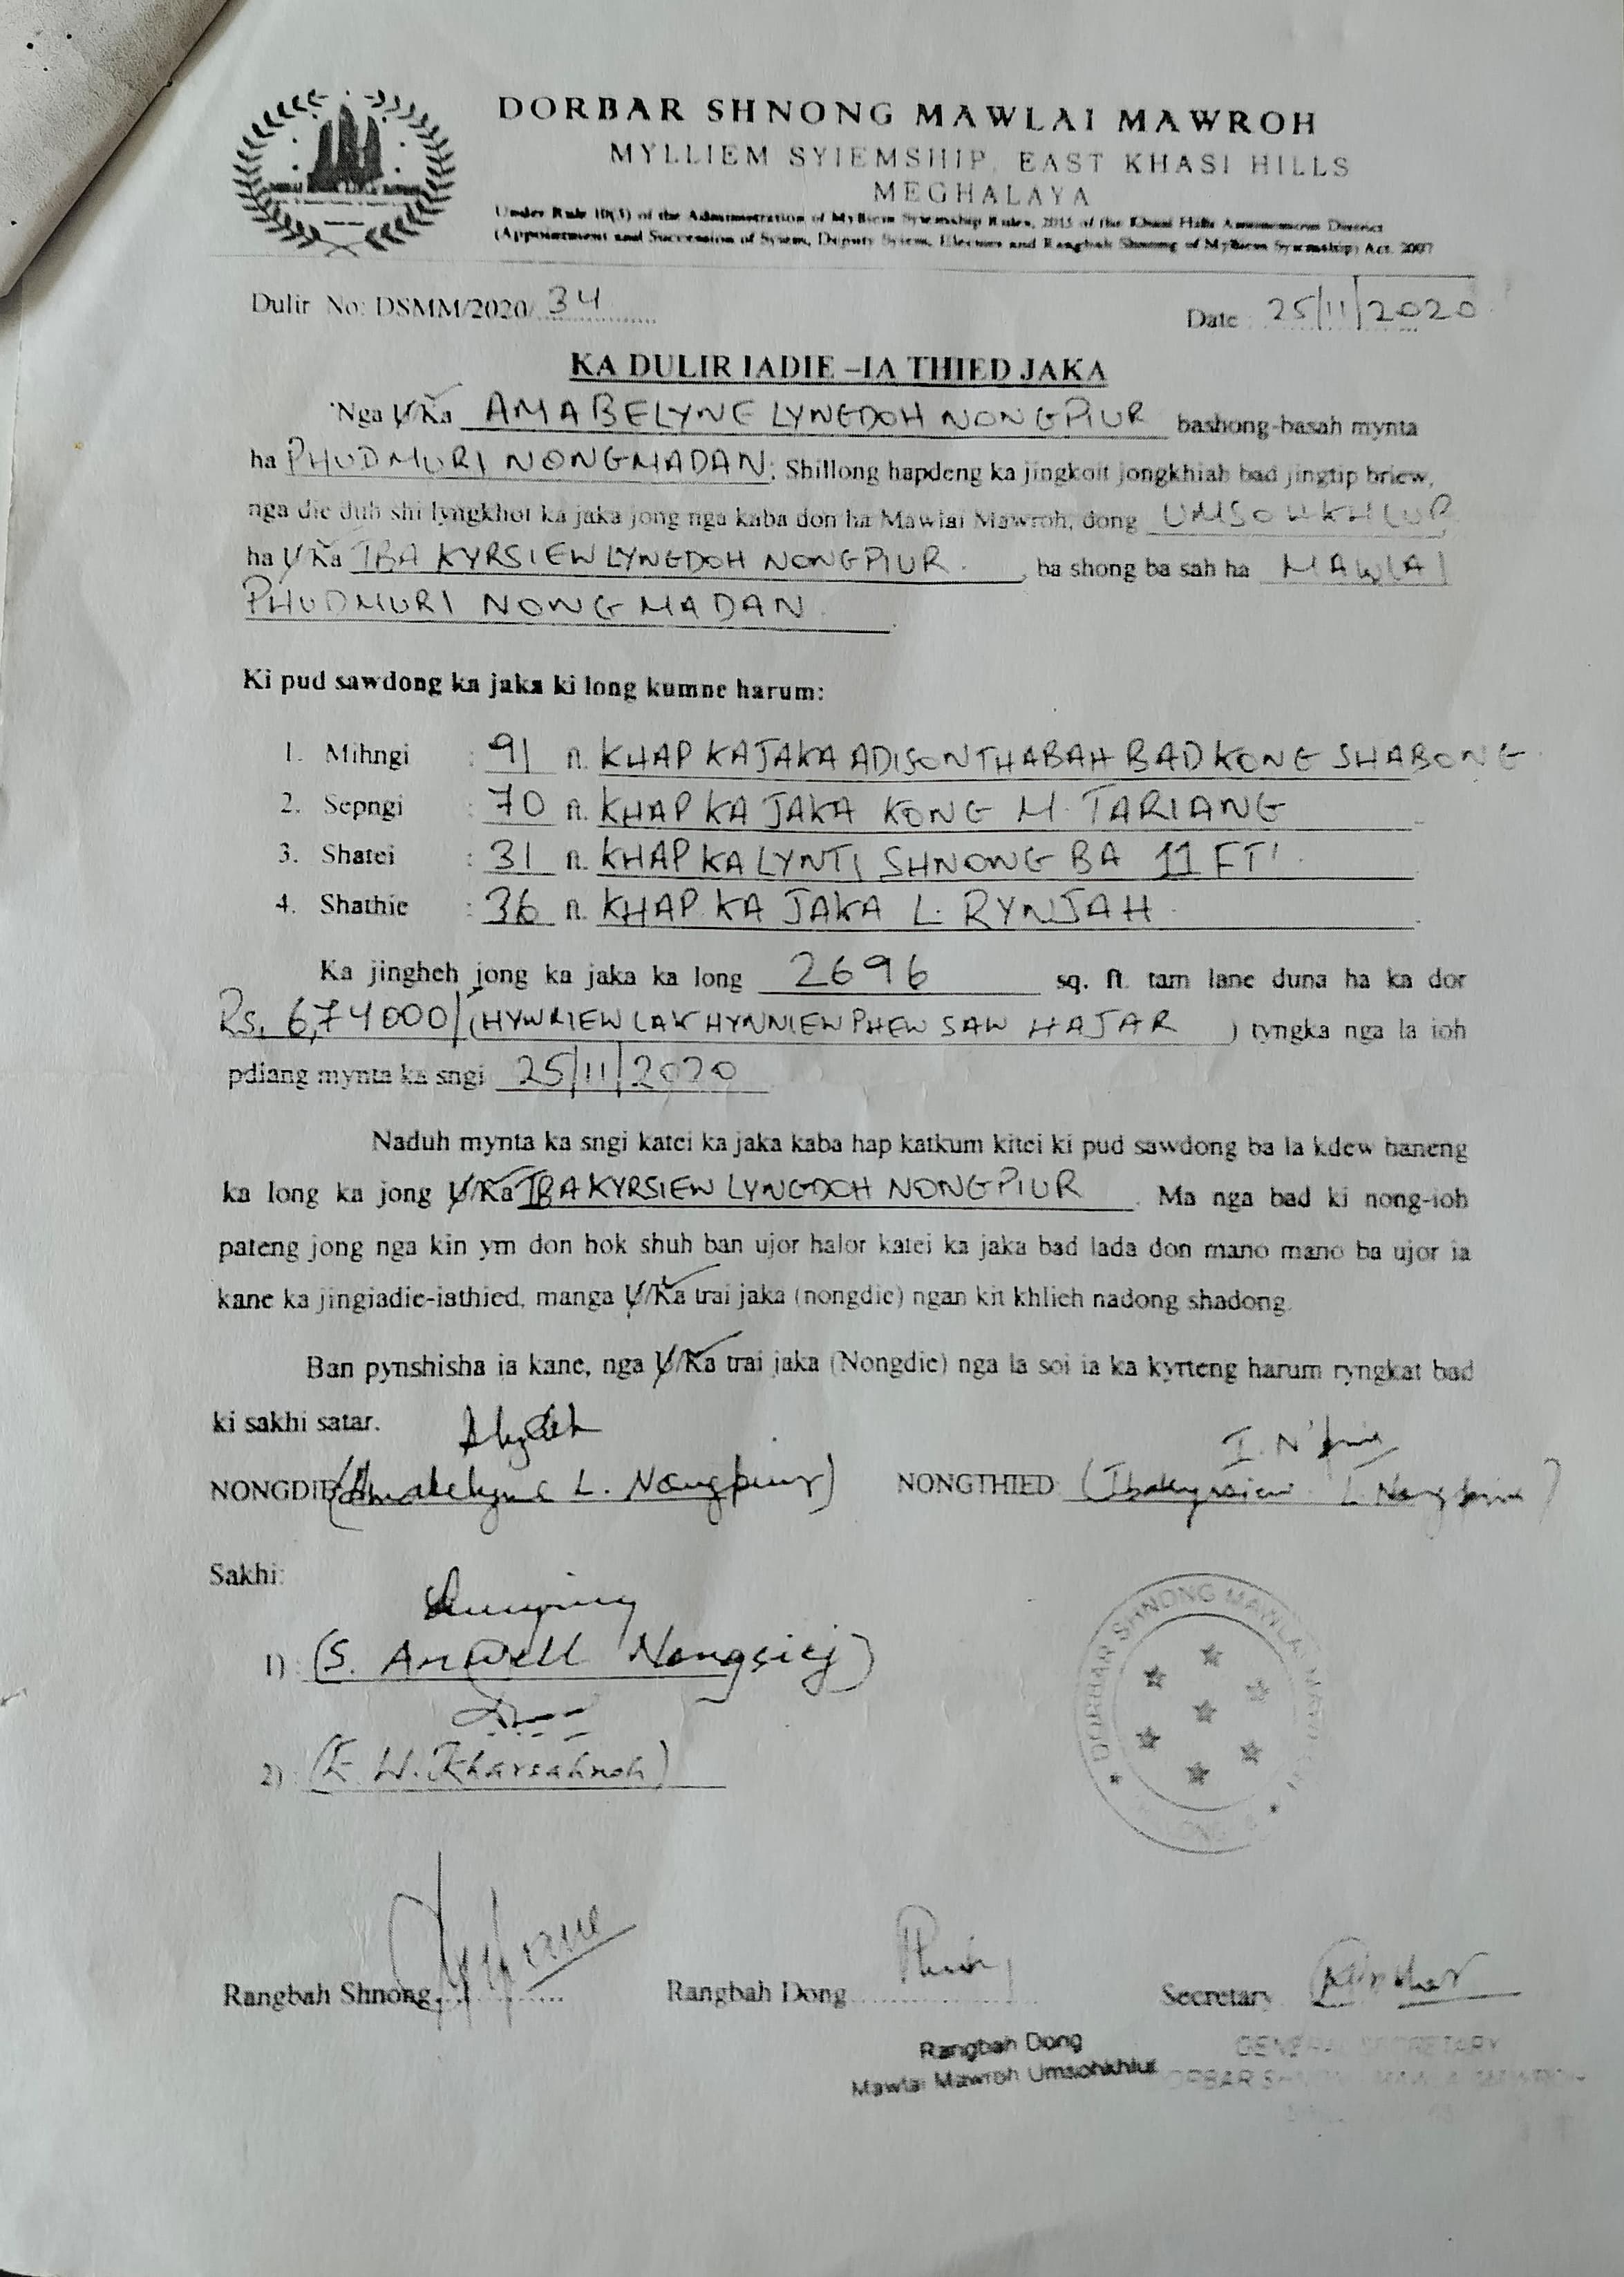 DORBAR SHNONG MAWLAI MAWROH
MYLLIEM SYIEMSHIP, EAST KHASI HILLS
MEGHALAYA
Under Rule 10(3) of the Administration of Mylliem Syiemship Rules, 2015 of the Khasi Hills Autonomous District
(Appointment and Succession of Syiem, Deputy Syiem, Electors and Rangbah Shnong of Mylliem Syiemship) Act. 2007
Dulir No: DSMM/2020/ 34
Date 25/11/2020
KA DULIR IADIE –IA THIED JAKA
Nga U/Ka AMABELYNE LYNGDOH NONGPIUR bashong-basah mynta
ha PHUDMURI NONGMADAN; Shillong hapdeng ka jingkoit jongkhiah bad jingtip briew,
nga die duh shi lyngkhot ka jaka jong nga kaba don ha Mawlai Mawroh, dong UMSOHKHLUR
ha U/Ka IBA KYRSIEW LYNGDOH NONGPIUR. ba shong ba sah ha MAWLAI
PHUDMURI NONGMADAN.
Ki pud sawdong ka jaka ki long kumne harum:
1. Mihngi : 91 ft. KHAP KA JAKA ADISON THABAH BAD KONG SHABONG
2. Sepngi : 70 ft. KHAP KA JAKA KONG M. TARIANG
3. Shatei : 31 ft. KHAP KA LYNTI SHNONG BA 11 FT'.
4. Shathie : 36 ft. KHAP KA JAKA L. RYNJAH.
Ka jingheh jong ka jaka ka long 2696 sq. ft. tam lane duna ha ka dor
Rs. 6,74000/- (HYNRIEW LAK HYNNIEW PHEW SAW HAJAR ) tyngka nga la ioh
pdiang mynta ka sngi 25/11/2020
Naduh mynta ka sngi katei ka jaka kaba hap katkum kitei ki pud sawdong ba la kdew haneng
ka long ka jong U/Ka IBA KYRSIEW LYNGDOH NONGPIUR. Ma nga bad ki nong-ioh
pateng jong nga kin ym don hok shuh ban ujor halor katei ka jaka bad lada don mano mano ba ujor ia
kane ka jingiadie-iathied, manga U/Ka trai jaka (nongdie) ngan kit khlieh nadong shadong.
Ban pynshisha ia kane, nga U/Ka trai jaka (Nongdie) nga la soi ia ka kyrteng harum ryngkat bad
ki sakhi satar.
NONGDIE (Amabelyne L. Nongpiur) NONGTHIED: (Ibakyrsiew L. Nongpiur)
Sakhi:
1) : (S. Arwell Nongsiej)
2) : (E. W. Kharsahnoh)
DORBAR SHNONG MAWLAI
Rangbah Shnong Rangbah Dong Secretary
Rangbah Dong
Mawlai Mawroh Umsohkhlur
GENERAL SECRETARY
DORBAR SHNONG MAWLAI MAWROH